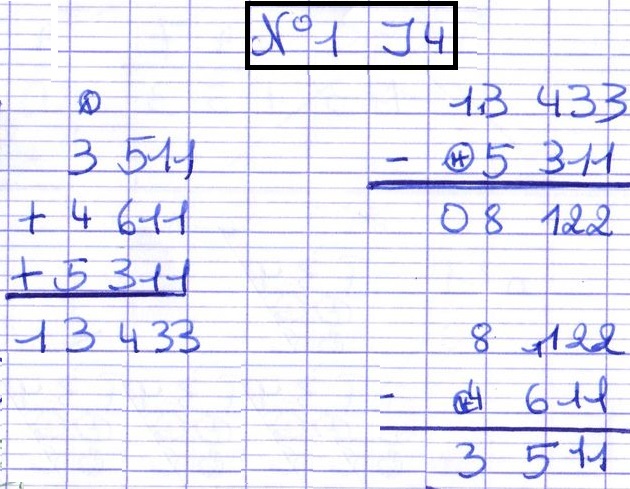 N°1 J4
1
3 511
+ 4 611
+ 5 311
13 433
13 433
- +1 5 311
08 122
8 122
- +1 4 611
3 511